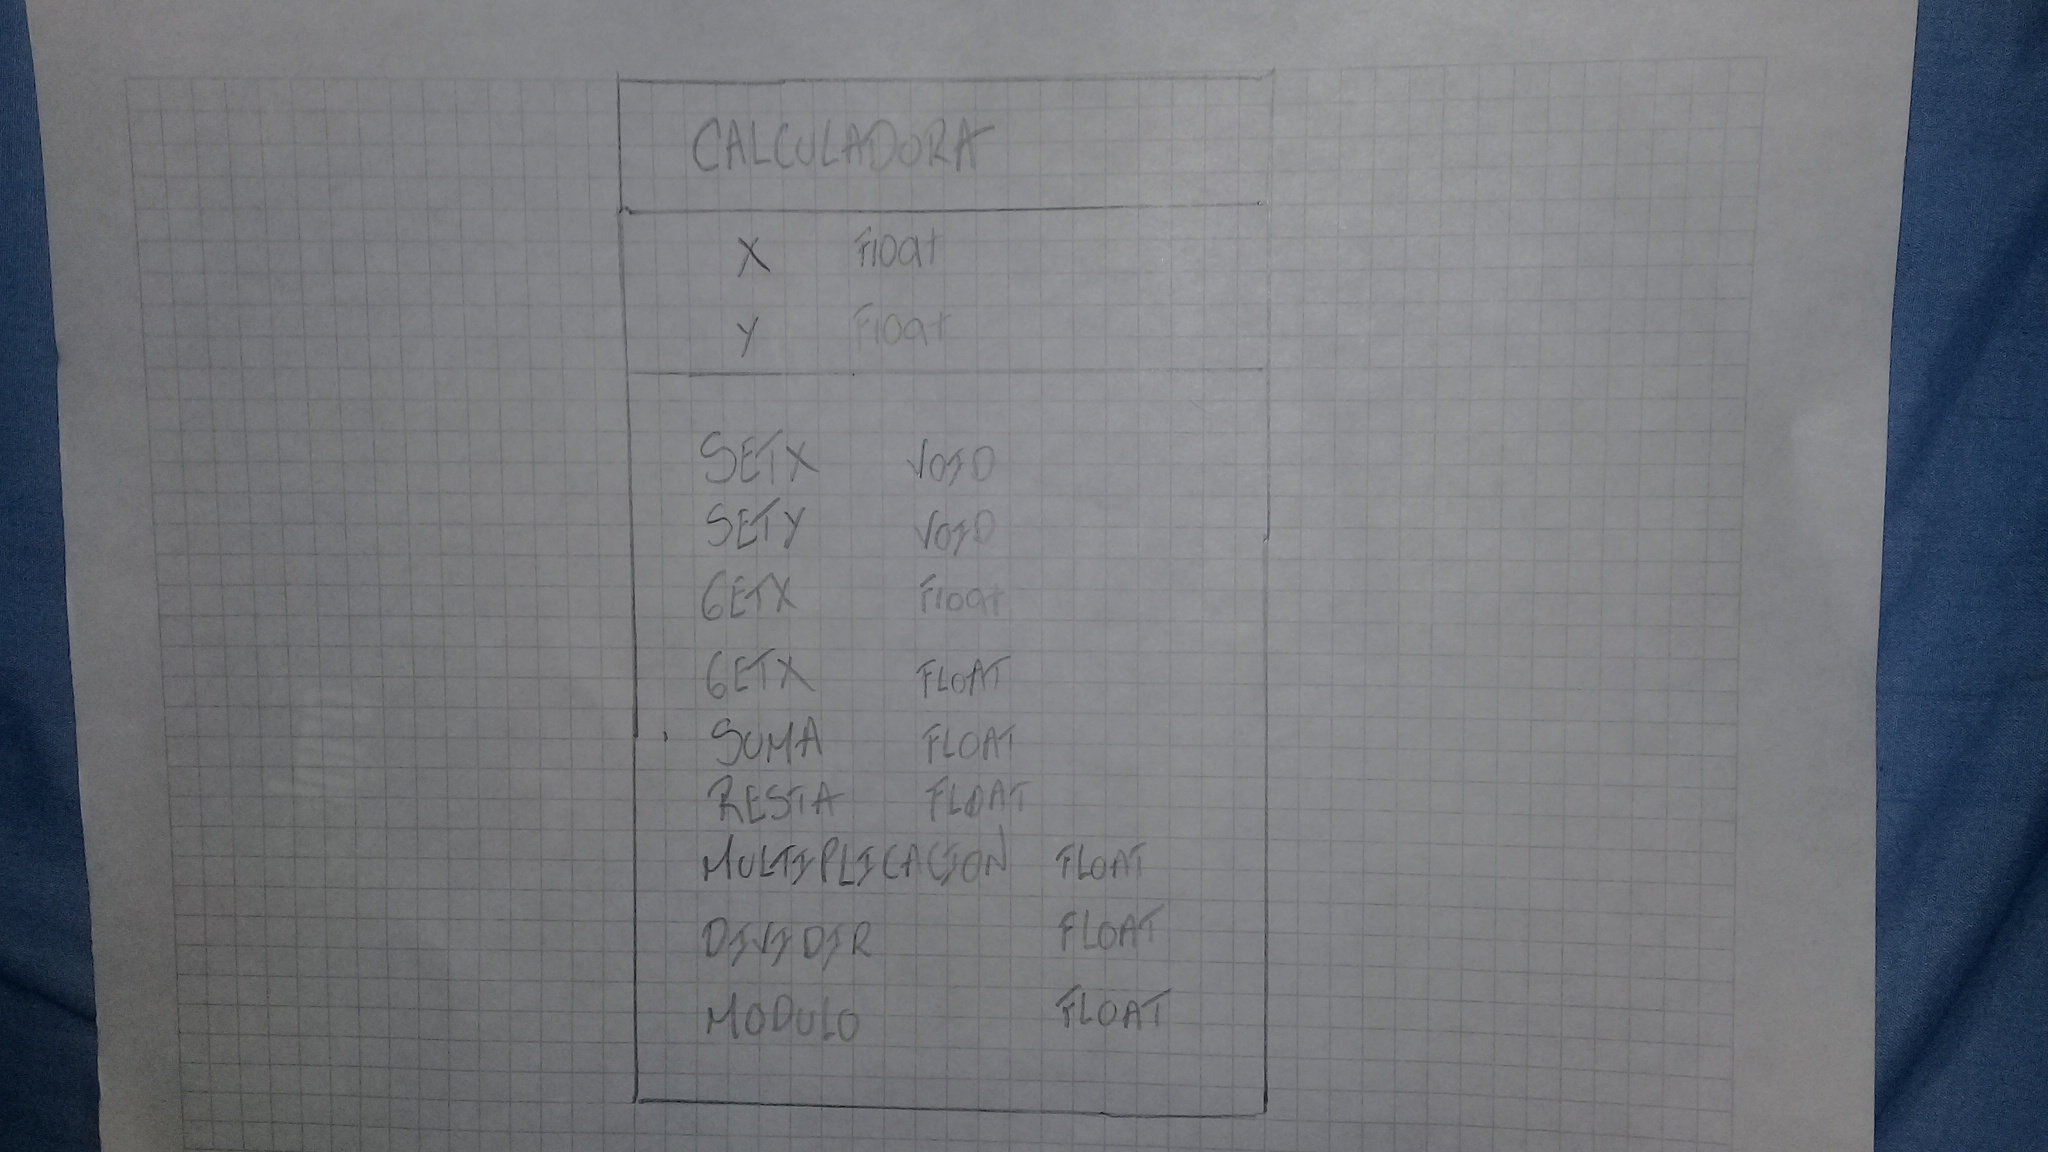 CALCULADORA
X Float
Y Float
SETX VOID
SETY VOID
GETX Float
GETX FLOAT
SUMA FLOAT
RESTA FLOAT
MULTIPLICACION FLOAT
DIVIDIR FLOAT
MODULO FLOAT